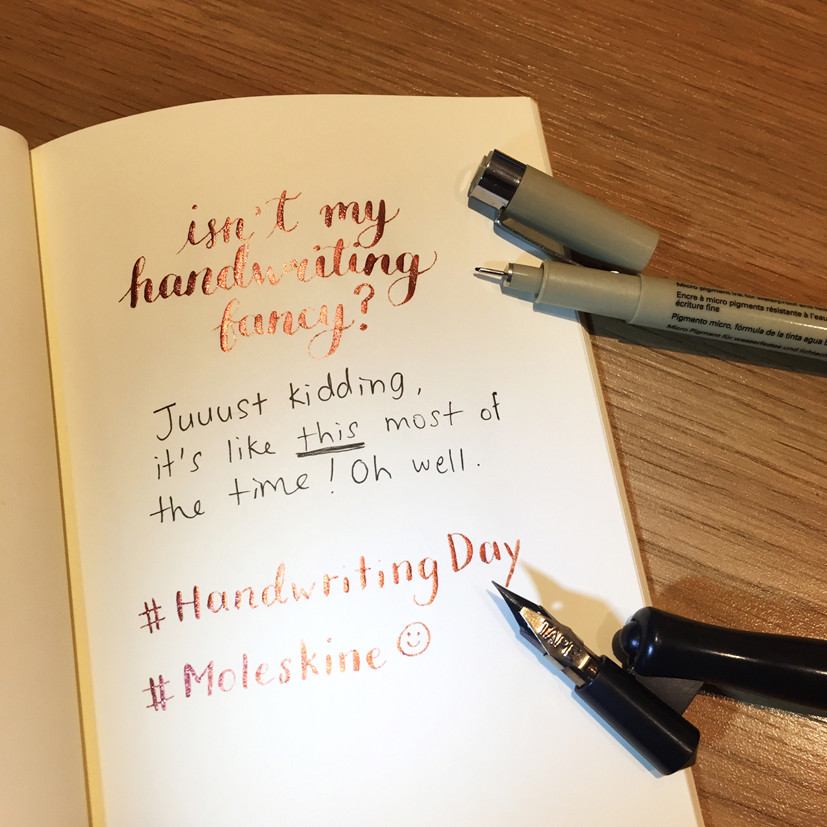 isn't my
handwriting
fancy?
Juuust kidding,
it's like this most of
the time! Oh well.
#HandwritingDay
#Moleskine ☺
Encre à micro pigments résistante à l'eau
écriture fine
Pigmento micro, fórmula de la tinta agua
Micro Pigment für wasserfestes und